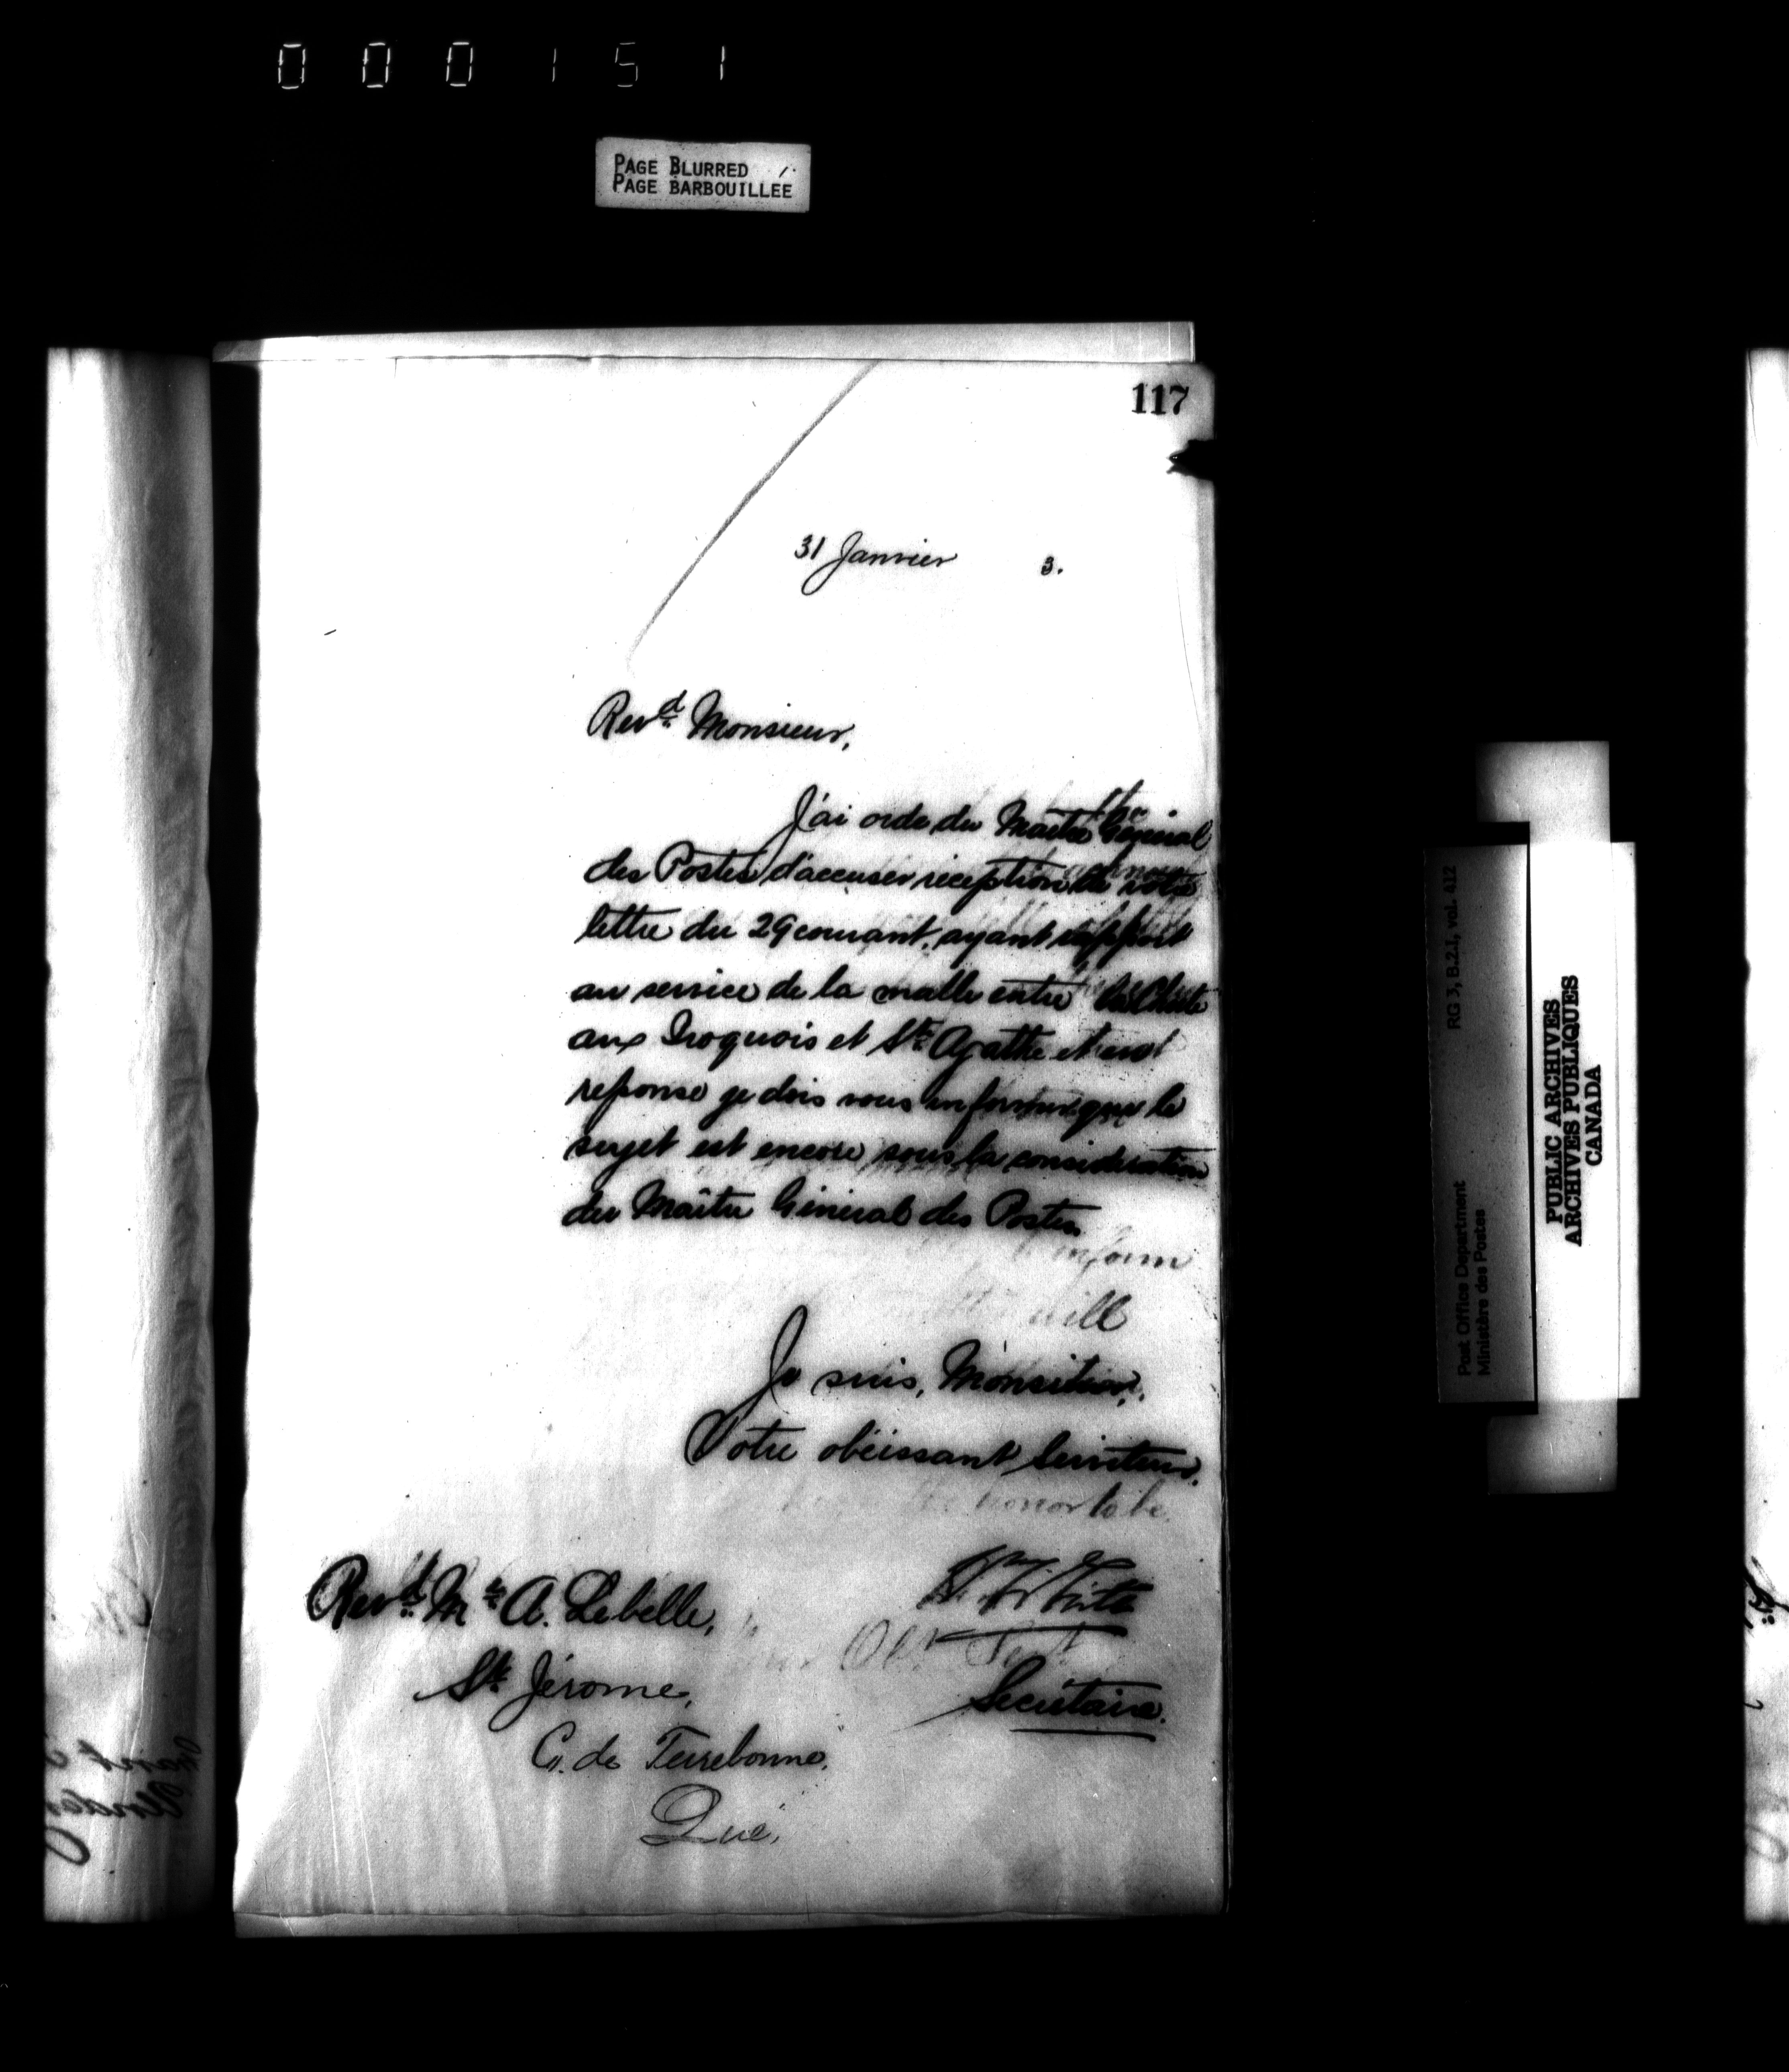 000151
PAGE BLURRED
PAGE BARBOUILLÉE
117
31 Janvier 3.
Revd Monsieur,
J'ai orde du Maître Général
des Postes d'accuser réception de votre
lettre du 29 courant, ayant rapport
au service de la malle entre la Chute
aux Iroquois et Ste Agathe et en
reponse je dois vous informer que le
sujet est encore sous la consideration
du Maître Général des Postes.
inform
will
Je suis, Monsieur,
Votre obéissant Serviteur.
honor to be
Revd Mr A. Lebelle,
St Jérome,
Secrétaire.
C. de Terrebonne,
Qué,
RG 3, B.2.1, vol. 412
Post Office Department
Ministère des Postes
PUBLIC ARCHIVES
ARCHIVES PUBLIQUES
CANADA